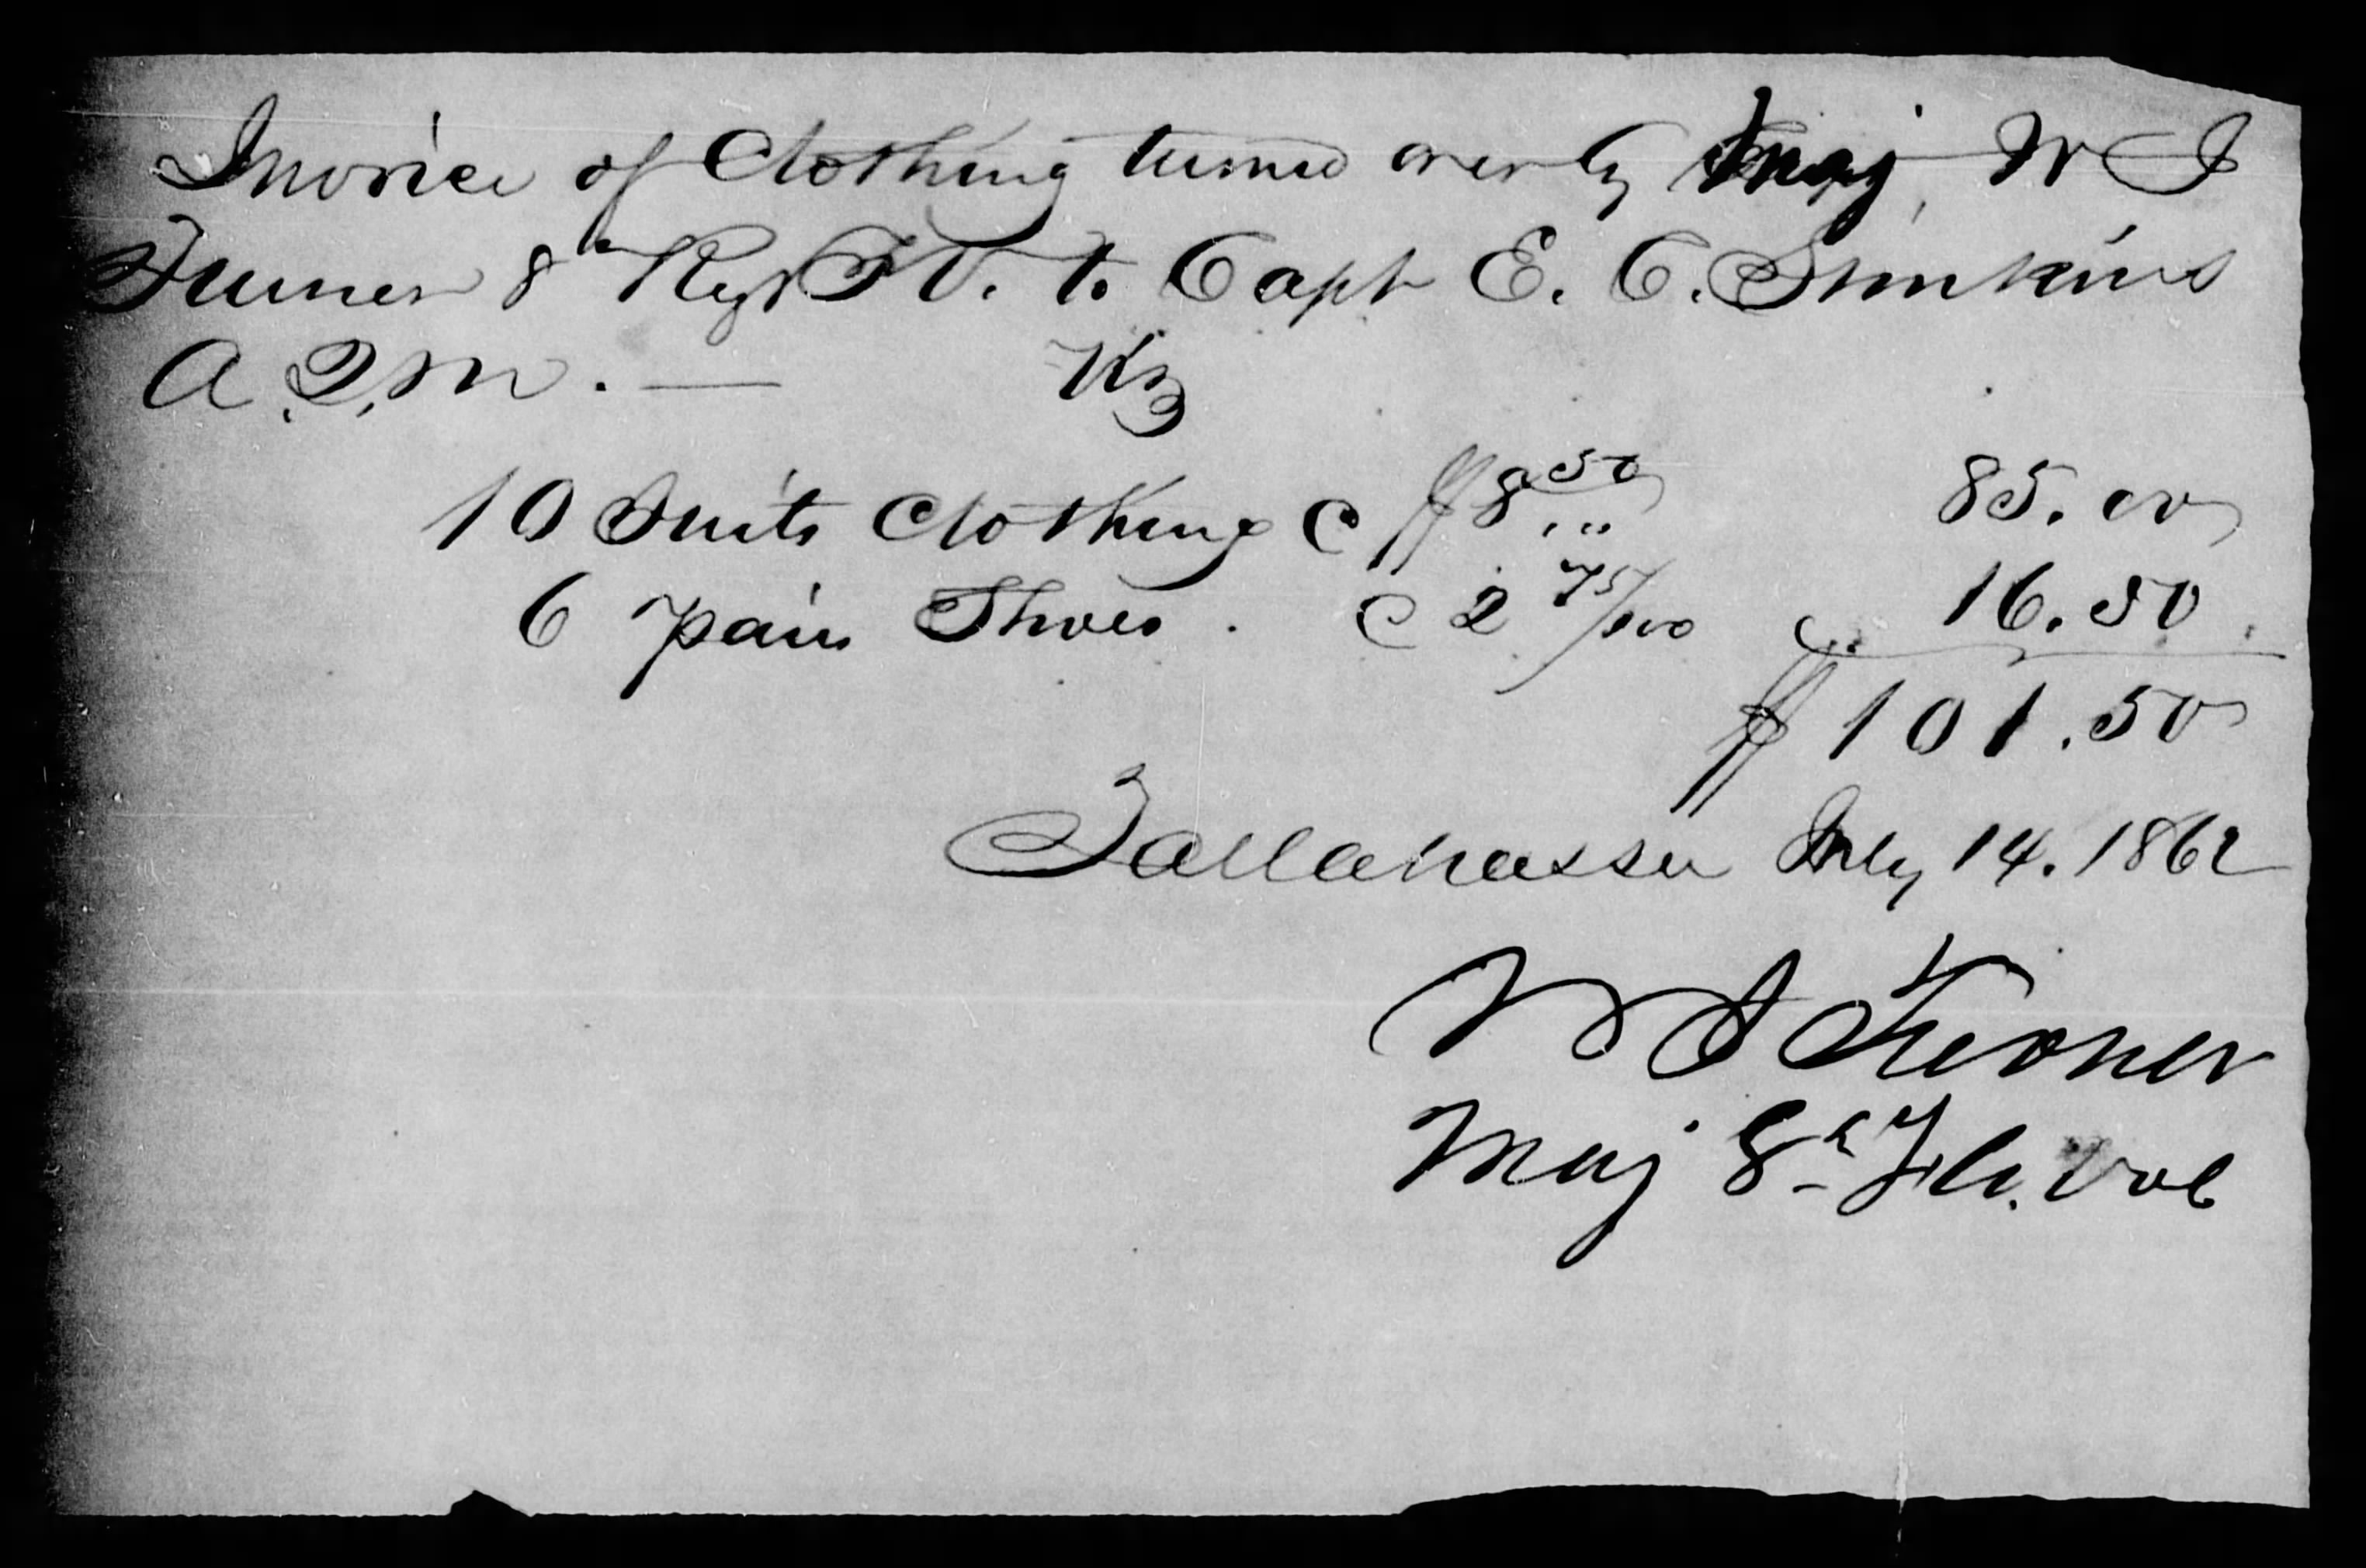 Invoice of Clothing turned over by Maj W J
Turner 8th Regt F V. to Capt E. C. Simkins
A. Q. M. — Viz
10 Suits Clothing @ $8.50 85.00
6 pairs Shoes. @ 2 75/100 16.50
$101.50
Tallahassee July 14. 1862
W J Turner
Maj 8th Fla. Vol